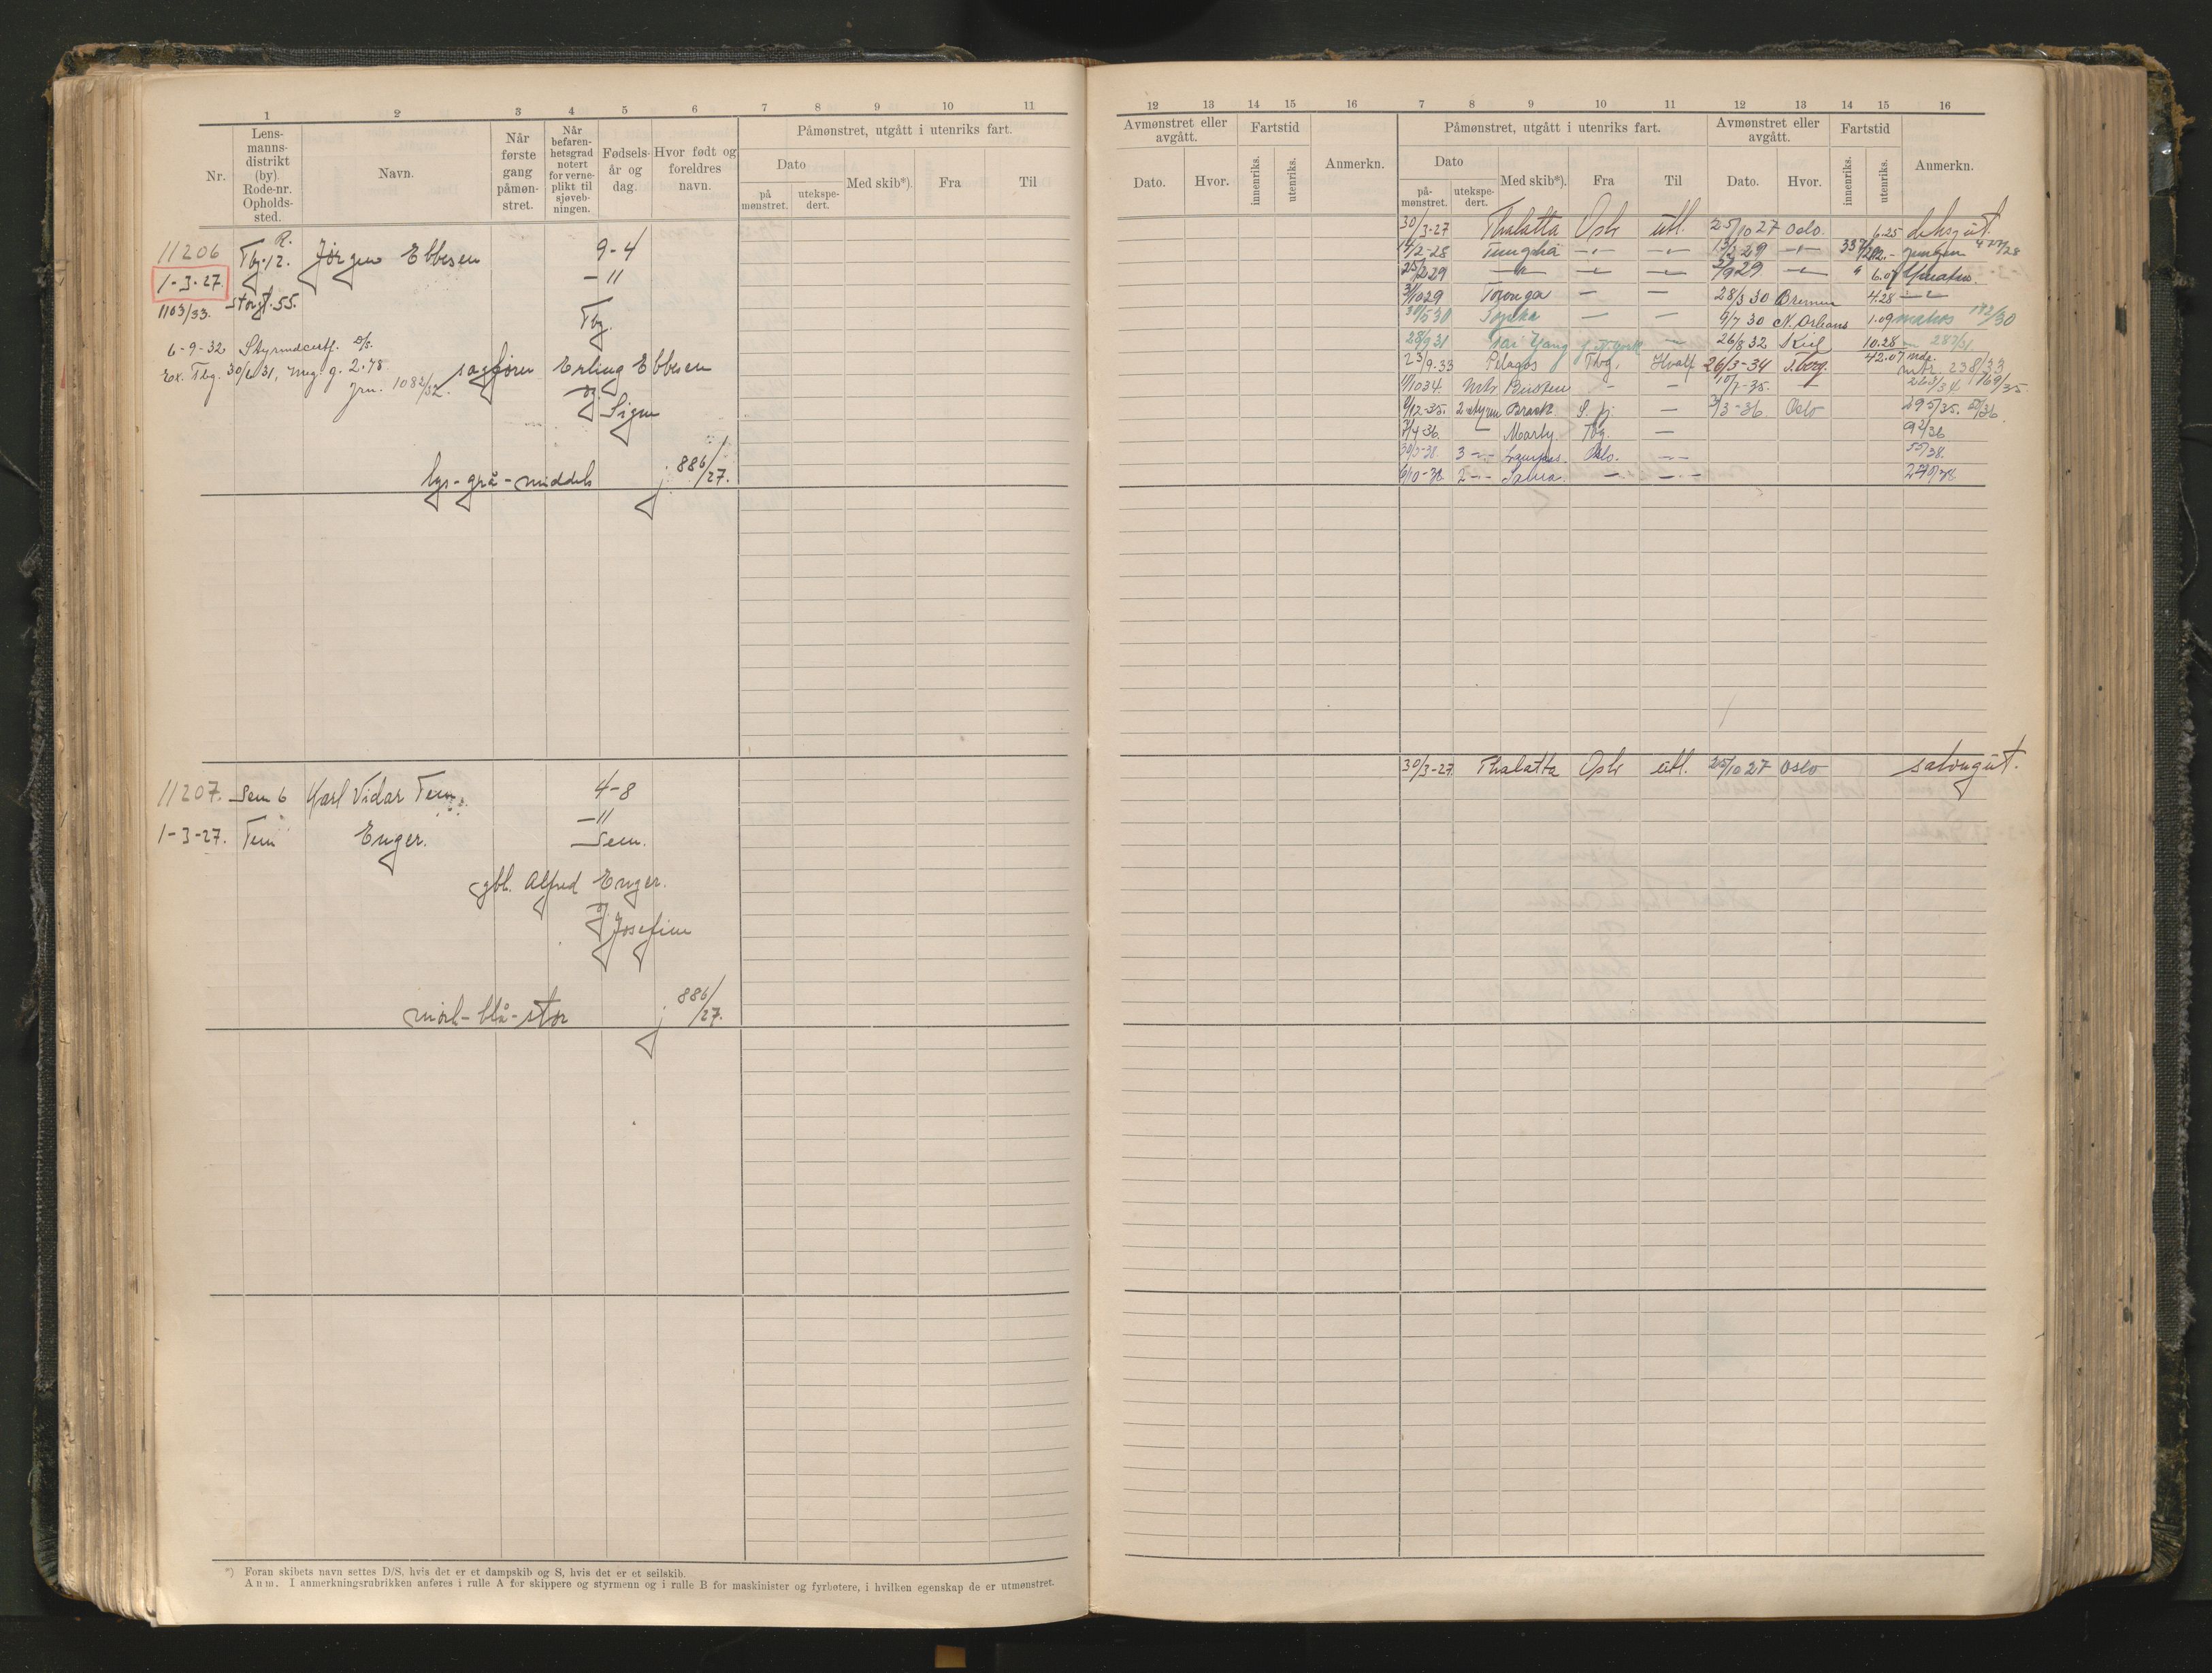 1 2 3 4 5 6 7 8 9 10 11
Nr.
Lens-
manns-
distrikt
(by).
Rode-nr.
Opholds-
sted.
Navn.
Når
første
gang
påmøn-
stret.
Når
befaren-
hetsgrad
notert
for verne-
plikt til
sjøveb-
ningen.
Fødsels-
år og
dag.
Hvor født og
foreldres
navn.
Påmønstret, utgått i utenriks fart.
Dato
på
mønstret.
utekspe-
dert.
Med skib*).
Fra
Til
11206 Tbg. 12. R. Jørgen Ebbesen 9-4
1-3-27. -11
1103/33. Storgt. 55. Tbg.
6-9-32 Styrmdcertf.
Ex. Tbg. 30/6 31, 2.78
Jrn. 1082/32.
sagfører Erling Ebbesen
og Signe
lys-grå-middels j. 886/27.
11207. Sem 6 Karl Vidar Tem 4-8
-11
1-3-27. Tem Enger. Sem.
gbr. Alfred Enger.
og Josefine
mørk-blå-stor j. 886/27.
*) Foran skibets navn settes D/S, hvis det er et dampskib og S, hvis det er et seilskib.
Anm. I anmerkningsrubrikken anføres i rulle A for skippere og styrmenn og i rulle B for maskinister og fyrbøtere, i hvilken egenskap de er utmønstret.
12 13 14 15 16 7 8 9 10 11 12 13 14 15 16
Avmønstret eller
avgått.
Dato.
Hvor.
Fartstid
innenriks.
utenriks.
Anmerkn.
Påmønstret, utgått i utenriks fart.
Dato
på-
mønstret.
utekspe-
dert.
Med skib*).
Fra
Til
Avmønstret eller
avgått.
Dato.
Hvor.
Fartstid
innenriks.
utenriks.
Anmerkn.
30/3-27 Thalatta Oslo utl. 25/10 27 Oslo. 6.25 deksgut.
14/2-28 Tungsha -"- -"- 13/2 29 -"- jungm
25/2 29 -"- -"- -"- 29 -"- 6.07 lmatr.
29 Toronga - - 28/3 30 Bremen 4.28 -"-
30/5 30 Topeka - - 9/7 30 N. Orleans 1.09 matros 172/30
28/9 31 Tai Yang N. York - 26/8 32 Kiel 10.28 287/31
23/9.33 Pelagos Tbg. Hvalf 26/3-34 Tbrg. 42.07 mdr.
mtr. 238/33
10 34. Mtr. - - -35. 263/34 169/35.
/12-35. 2 styrm Brask S. fj. - /3-36 Oslo 295/35. 50/36.
/4 36. - Marly Tbg. - 92/36
38. 3 -"- Oslo. -"- 55/38.
/10-38. 2 -"- - -"-
30/3-27. Thalatta Oslo utl. 25/10 27 Oslo salongut.